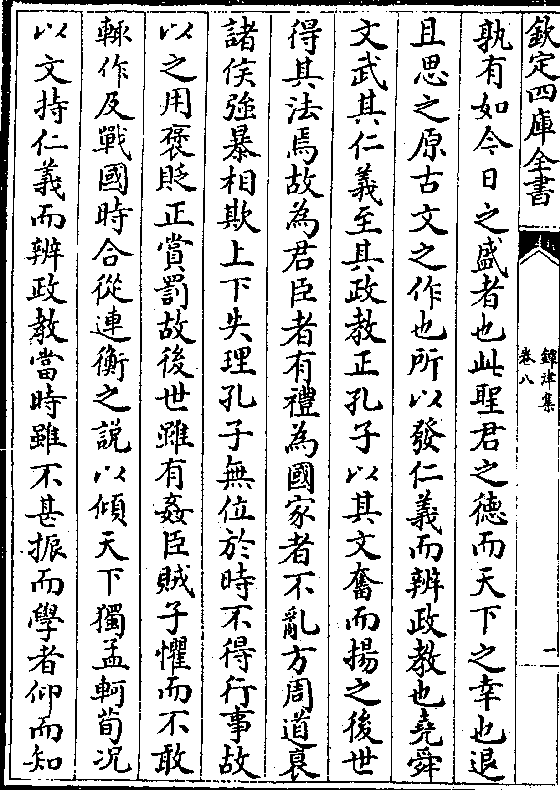 欽定四庫全書
鐔津集
卷八
一
孰有如今日之盛者也此聖君之德而天下之幸也退
且思之原古文之作也所以發仁義而辨政教也堯舜
文武其仁義至其政教正孔子以其文奮而揚之後世
得其法焉故為君臣者有禮為國家者不亂方周道衰
諸侯強暴相欺上下失理孔子無位於時不得行事故
以之用褒貶正賞罰故後世雖有姦臣賊子懼而不敢
輙作及戰國時合從連衡之說以傾天下獨孟軻荀况
以文持仁義而辨政教當時雖不甚振而學者仰而知